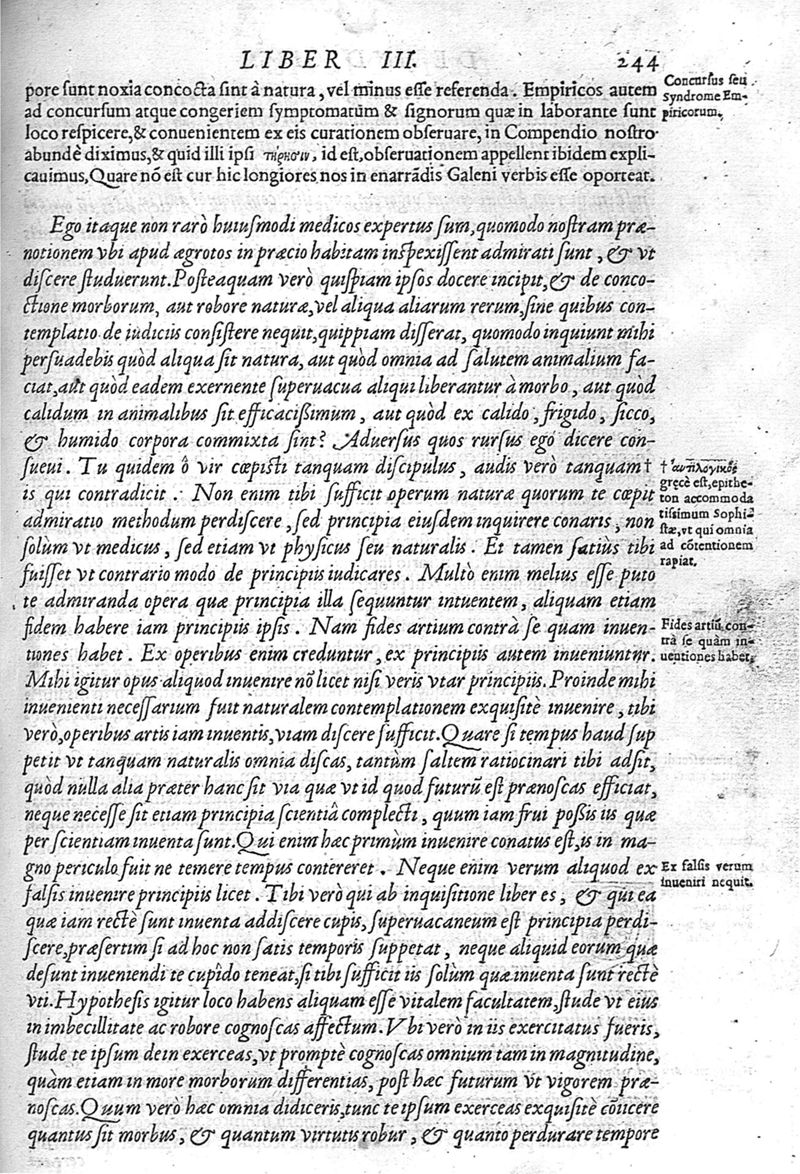 LIBER III. 244
pore sunt noxia concocta sint à natura, vel minus esse referenda. Empiricos autem
ad concursum atque congeriem symptomatum & signorum quæ in laborante sunt
loco respicere, & conuenientem ex eis curationem obseruare, in Compendio nostro
abundè diximus, & quid illi ipsi τήρησιν, id est, obseruationem appellent ibidem expli-
cauimus, Quare nō est cur hic longiores nos in enarrādis Galeni verbis esse oporteat.
Concursus seu
syndrome Em-
piricorum.
Ego itaque non rarò huiusmodi medicos expertus sum, quomodo nostram præ-
notionem vbi apud ægrotos in præcio habitam inspexissent admirati sunt, & vt
discere studuerunt. Posteaquam verò quispiam ipsos docere incipit, & de conco-
ctione morborum, aut robore naturæ, vel aliqua aliarum rerum, sine quibus con-
templatio de iudiciis consistere nequit, quippiam disserat, quomodo inquiunt mihi
persuadebis quòd aliqua sit natura, aut quòd omnia ad salutem animalium fa-
ciat, aut quòd eadem exernente superuacua aliqui liberantur à morbo, aut quòd
calidum in animalibus sit efficacißimum, aut quòd ex calido, frigido, sicco,
& humido corpora commixta sint? Aduersus quos rursus ego dicere con-
sueui. Tu quidem ô vir cœpisti tanquam discipulus, audis verò tanquam †
is qui contradicit. Non enim tibi sufficit operum naturæ quorum te cœpit
admiratio methodum perdiscere, sed principia eiusdem inquirere conaris, non
solùm vt medicus, sed etiam vt physicus seu naturalis. Et tamen satiùs tibi
fuisset vt contrario modo de principiis iudicares. Multò enim melius esse puto
te admiranda opera quæ principia illa sequuntur intuentem, aliquam etiam
fidem habere iam principiis ipsis. Nam fides artium contrà se quam inuen-
tiones habet. Ex operibus enim creduntur, ex principiis autem inueniuntur.
Mihi igitur opus aliquod inuenire nō licet nisi veris vtar principiis. Proinde mihi
inuenienti necessarium fuit naturalem contemplationem exquisitè inuenire, tibi
verò, operibus artis iam inuentis, viam discere sufficit. Quare si tempus haud sup
petit vt tanquam naturalis omnia discas, tantùm saltem ratiocinari tibi adsit,
quòd nulla alia præter hanc sit via quæ vt id quod futurū est prænoscas efficiat,
neque necesse sit etiam principia scientiâ complecti, quum iam frui poßis iis quæ
per scientiam inuenta sunt. Qui enim hæc primùm inuenire conatus est, is in ma-
gno periculo fuit ne temere tempus contereret. Neque enim verum aliquod ex
falsis inuenire principiis licet. Tibi verò qui ab inquisitione liber es, & qui ea
quæ iam rectè sunt inuenta addiscere cupis, superuacaneum est principia perdi-
scere, præsertim si ad hoc non satis temporis suppetat, neque aliquid eorum quæ
desunt inueniendi te cupîdo teneat, si tibi sufficit iis solùm quæ inuenta sunt rectè
vti. Hypothesis igitur loco habens aliquam esse vitalem facultatem, stude vt eius
in imbecillitate ac robore cognoscas affectum. Vbi verò in iis exercitatus fueris,
stude te ipsum dein exerceas, vt promptè cognoscas omnium tam in magnitudine,
quàm etiam in more morborum differentias, post hæc futurum vt vigorem præ-
noscas. Quum verò hæc omnia didiceris, tunc te ipsum exerceas exquisitè cōiicere
quantus sit morbus, & quantum virtutis robur, & quanto perdurare tempore
† ἀντιλογικὸς
gręcè est, epithe-
ton accommoda
tissimum Sophi-
stæ, vt qui omnia
ad cōtentionem
rapiat.
Fides artiū con-
trà se quàm in-
uentiones habet.
Ex falsis verum
inueniri nequit.